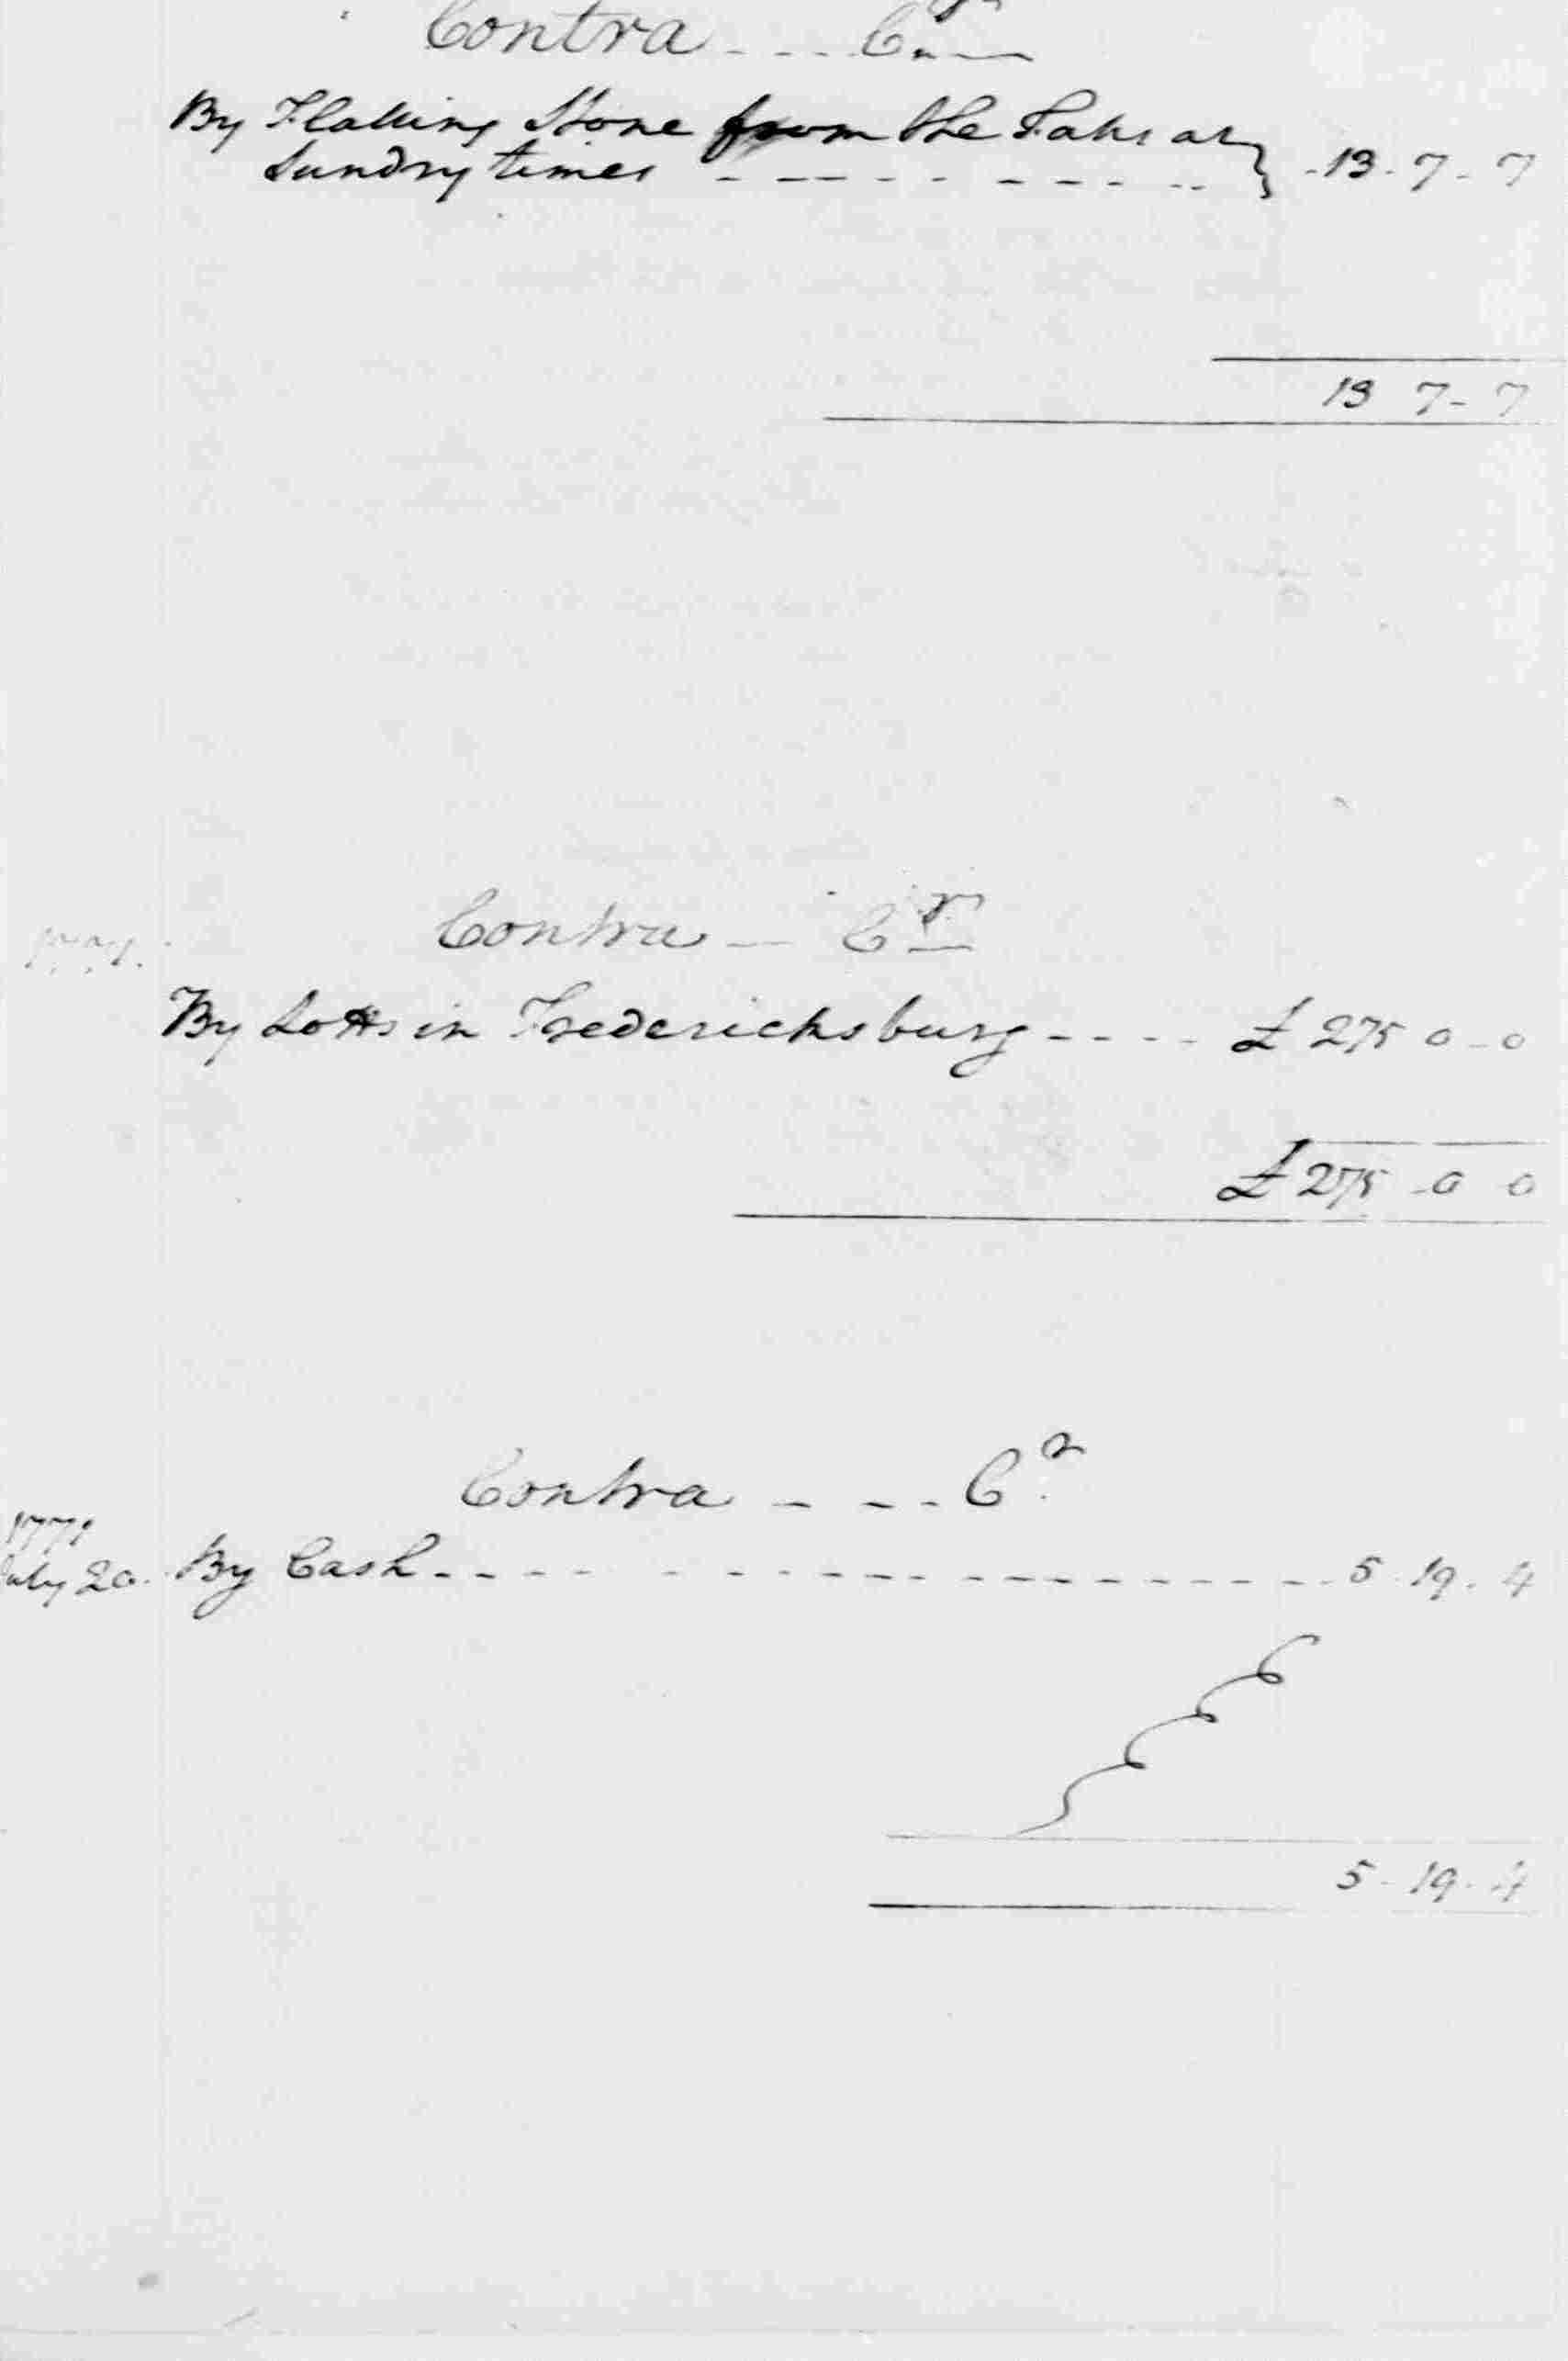 Contra - - - Cr
By Flatting Stone from the Falls at
Sundry times - - - - - - - - - - 13 - 7 - 7
13 7 - 7
Contra - Cr
By Lotts in Fredericksburg - - - - £ 275 0 - 0
£ 275 - 0 0
Contra - - - Cr
1771
July 20. By Cash - - - - - - - - - - - - - - - - 5 - 19 - 4
5 - 19 - 4